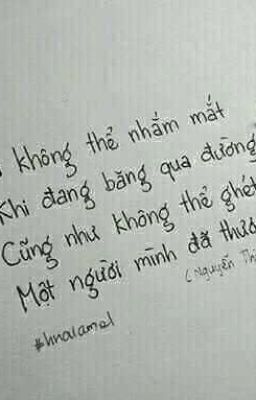 không thể nhắm mắt
Khi đang băng qua đường
Cũng như không thể ghét
Một người mình đã
(Nguyễn
#hnalamel